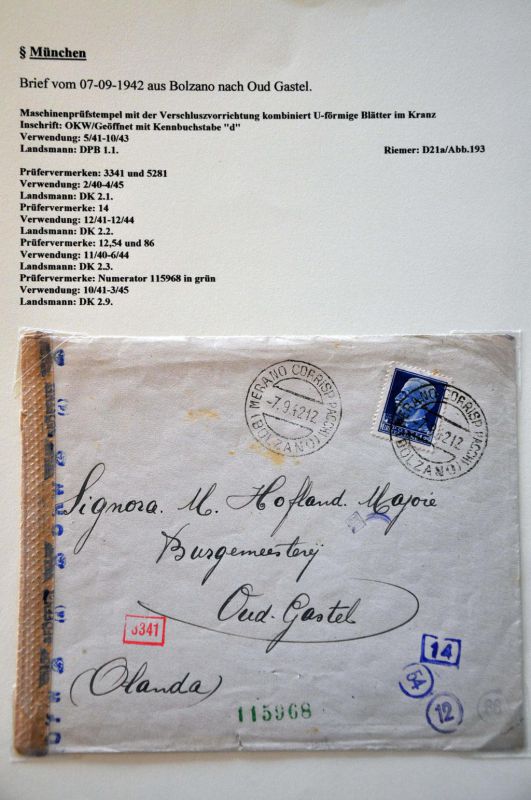 § München
Brief vom 07-09-1942 aus Bolzano nach Oud Gastel.
Maschinenprüfstempel mit der Verschluszvorrichtung kombiniert U-förmige Blätter im Kranz
Inschrift: OKW/Geöffnet mit Kennbuchstabe "d"
Verwendung: 5/41-10/43
Landsmann: DPB 1.1. Riemer: D21a/Abb.193
Prüfervermerken: 3341 und 5281
Verwendung: 2/40-4/45
Landsmann: DK 2.1.
Prüfervermerke: 14
Verwendung: 12/41-12/44
Landsmann: DK 2.2.
Prüfervermerke: 12,54 und 86
Verwendung: 11/40-6/44
Landsmann: DK 2.3.
Prüfervermerke: Numerator 115968 in grün
Verwendung: 10/41-3/45
Landsmann: DK 2.9.
MERANO CORRISP. PACCHI
-7.9.42 12
(BOLZANO)
MERANO CORRISP. PACCHI
42 12
(BOLZANO)
Signora. M. Hofland. Majoie
Burgemeesterij
Oud-Gastel
3341
14
(Olanda)
54
12
86
115968